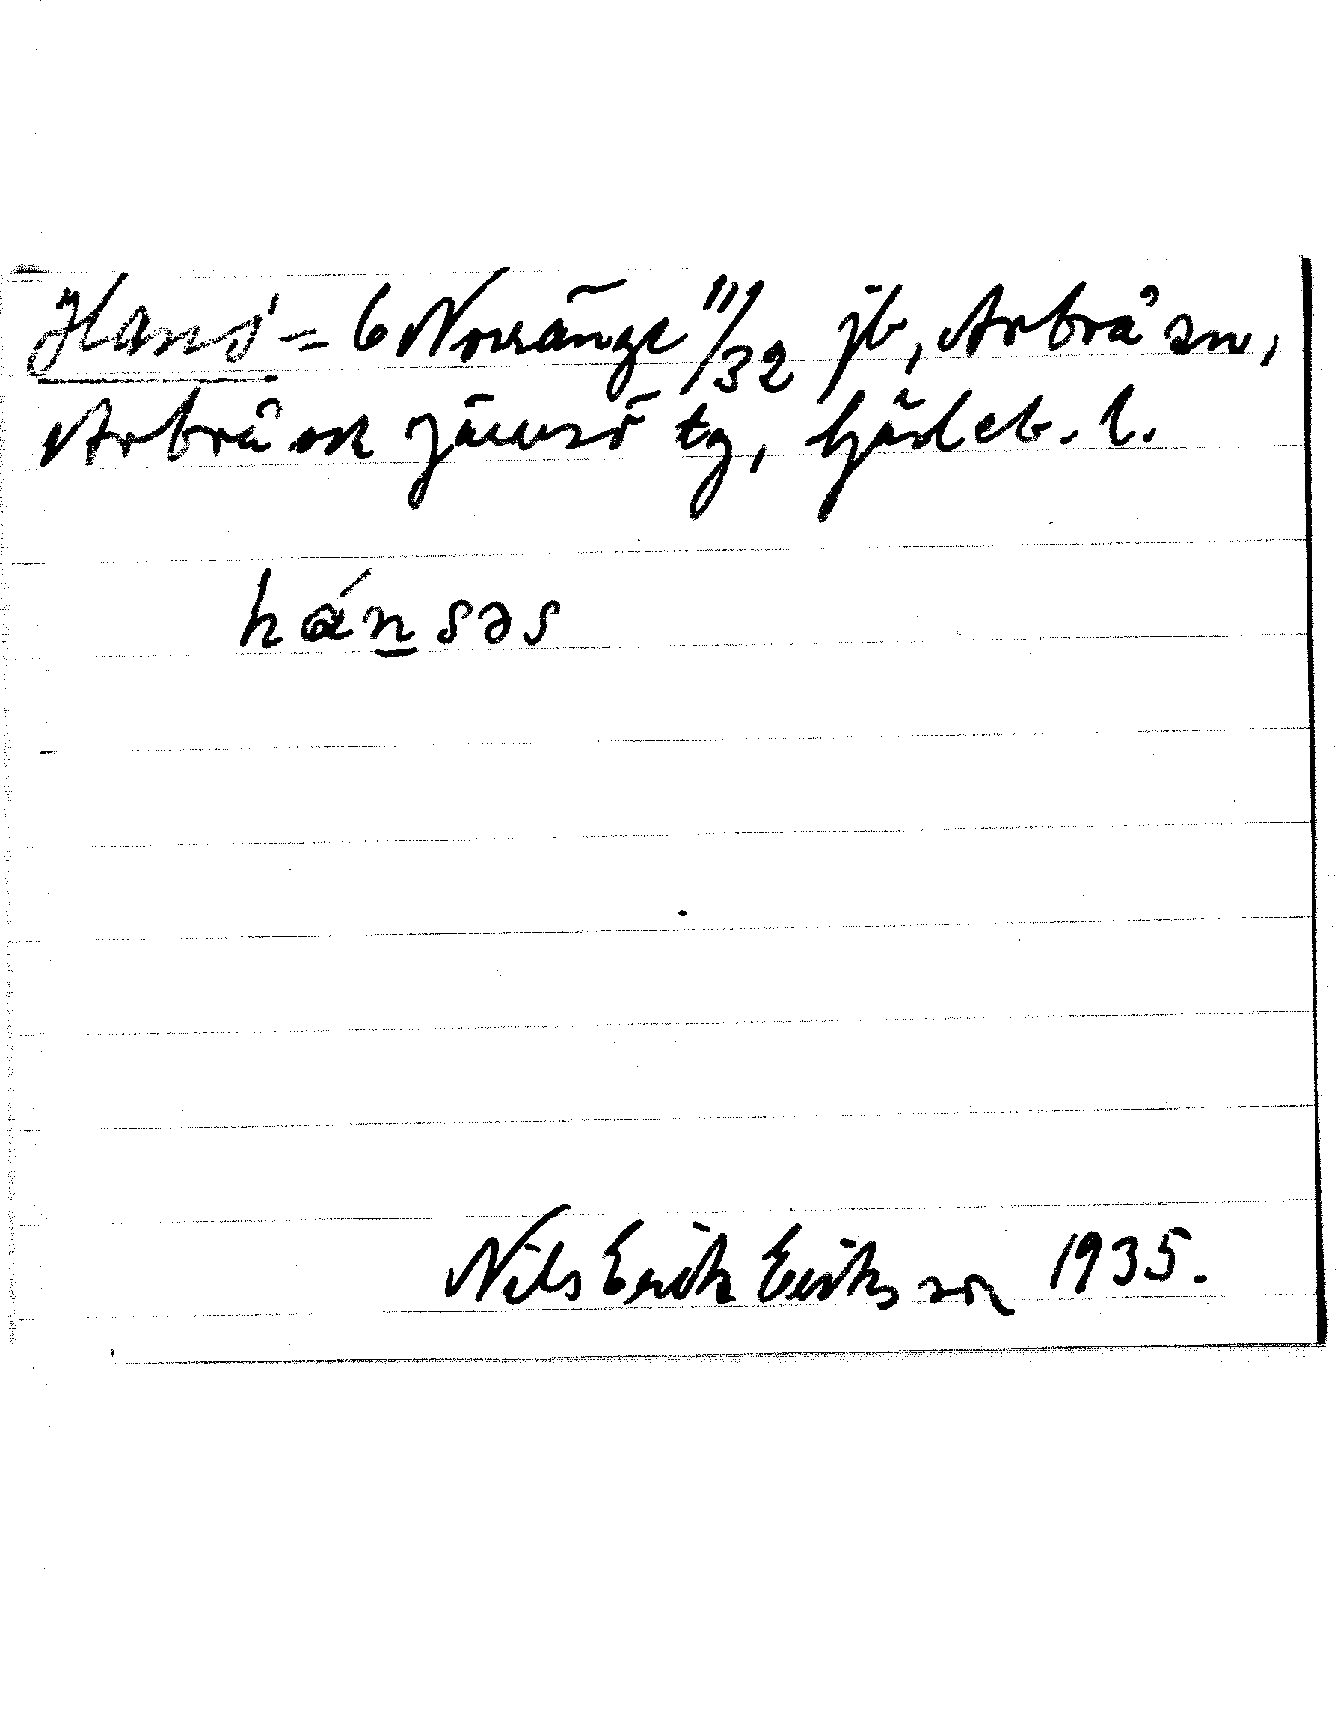 Hans' = 6 Norränge 11/32 jb, Arbrå sn,
Arbrå ock Järvsö tg, Gävleb. l.
hánsəs
Nils Erik Eriksson 1935.